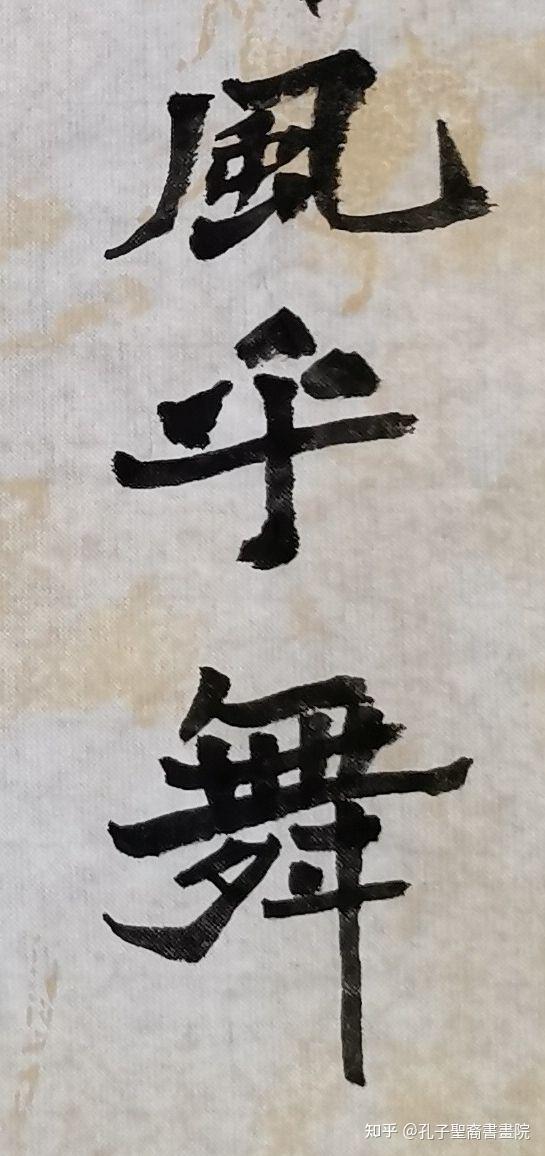 風乎舞
知乎 @孔子聖裔書畫院